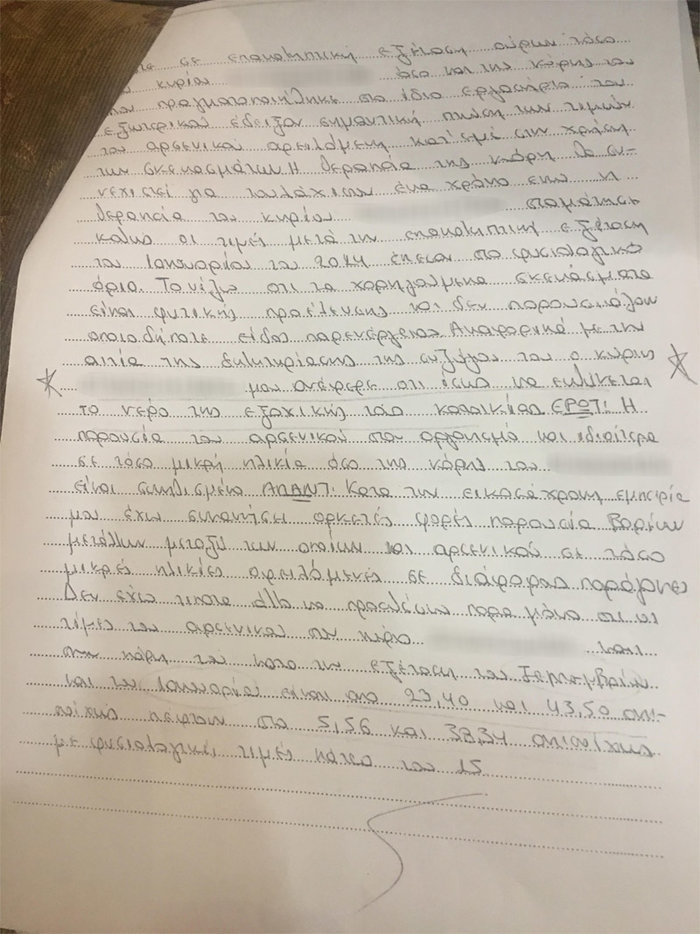 σε επαναληπτική εξέταση ούρων τόσο
κυρίου όσο και της κόρης του
που πραγματοποιήθηκε στο ίδιο εργαστήριο του
εξωτερικού έδειξαν σημαντική πτώση των τιμών
του αρσενικού οφειλόμενη κατ' εμέ στην χρήση
των σκευασμάτων. Η θεραπεία της κόρη θα συ-
νεχιστεί για τουλάχιστον ένα χρόνο ενώ η
θεραπεία του κυρίου σταμάτησε
καθώς οι τιμές μετά την επαναληπτική εξέταση
του Ιανουαρίου του 2014 έπεσαν στο φυσιολογικό
όριο. Τονίζω ότι τα χορηγούμενα σκευάσματα
είναι φυτικής προέλευσης και δεν παρουσιάζουν
οποιοδήποτε είδος παρενέργειας. Αναφορικά με την
αιτία της δηλητηρίασης της συζύγου του ο κύριος
μου ανέφερε ότι ίσως να ευθύνεται
το νερό της εξοχικής του κατοικίας ΕΡΩΤ: Η
παρουσία του αρσενικού στον οργανισμό και ιδιαίτερα
σε τόσο μικρή ηλικία όσο της κόρης του
είναι συνηθισμένο ΑΠΑΝΤ: Κατά την εικοσάχρονη εμπειρία
μου έχω συναντήσει αρκετές φορές παρουσία βαρέων
μετάλλων μεταξύ των οποίων και αρσενικού σε τόσο
μικρές ηλικίες οφειλόμενες σε διάφορους παράγοντες
Δεν έχω τίποτα άλλο να προσθέσω παρά μόνο ότι οι
τιμές του αρσενικού στον κύριο και
στην κόρη του κατά την εξέταση του Σεπτεμβρίου
και του Ιανουαρίου είναι από 23,40 και 43,50 αντι-
στοίχως πέφτουν στα 5,56 και 38,34 αντιστοίχως
με φυσιολογικές τιμές κάτω του 15